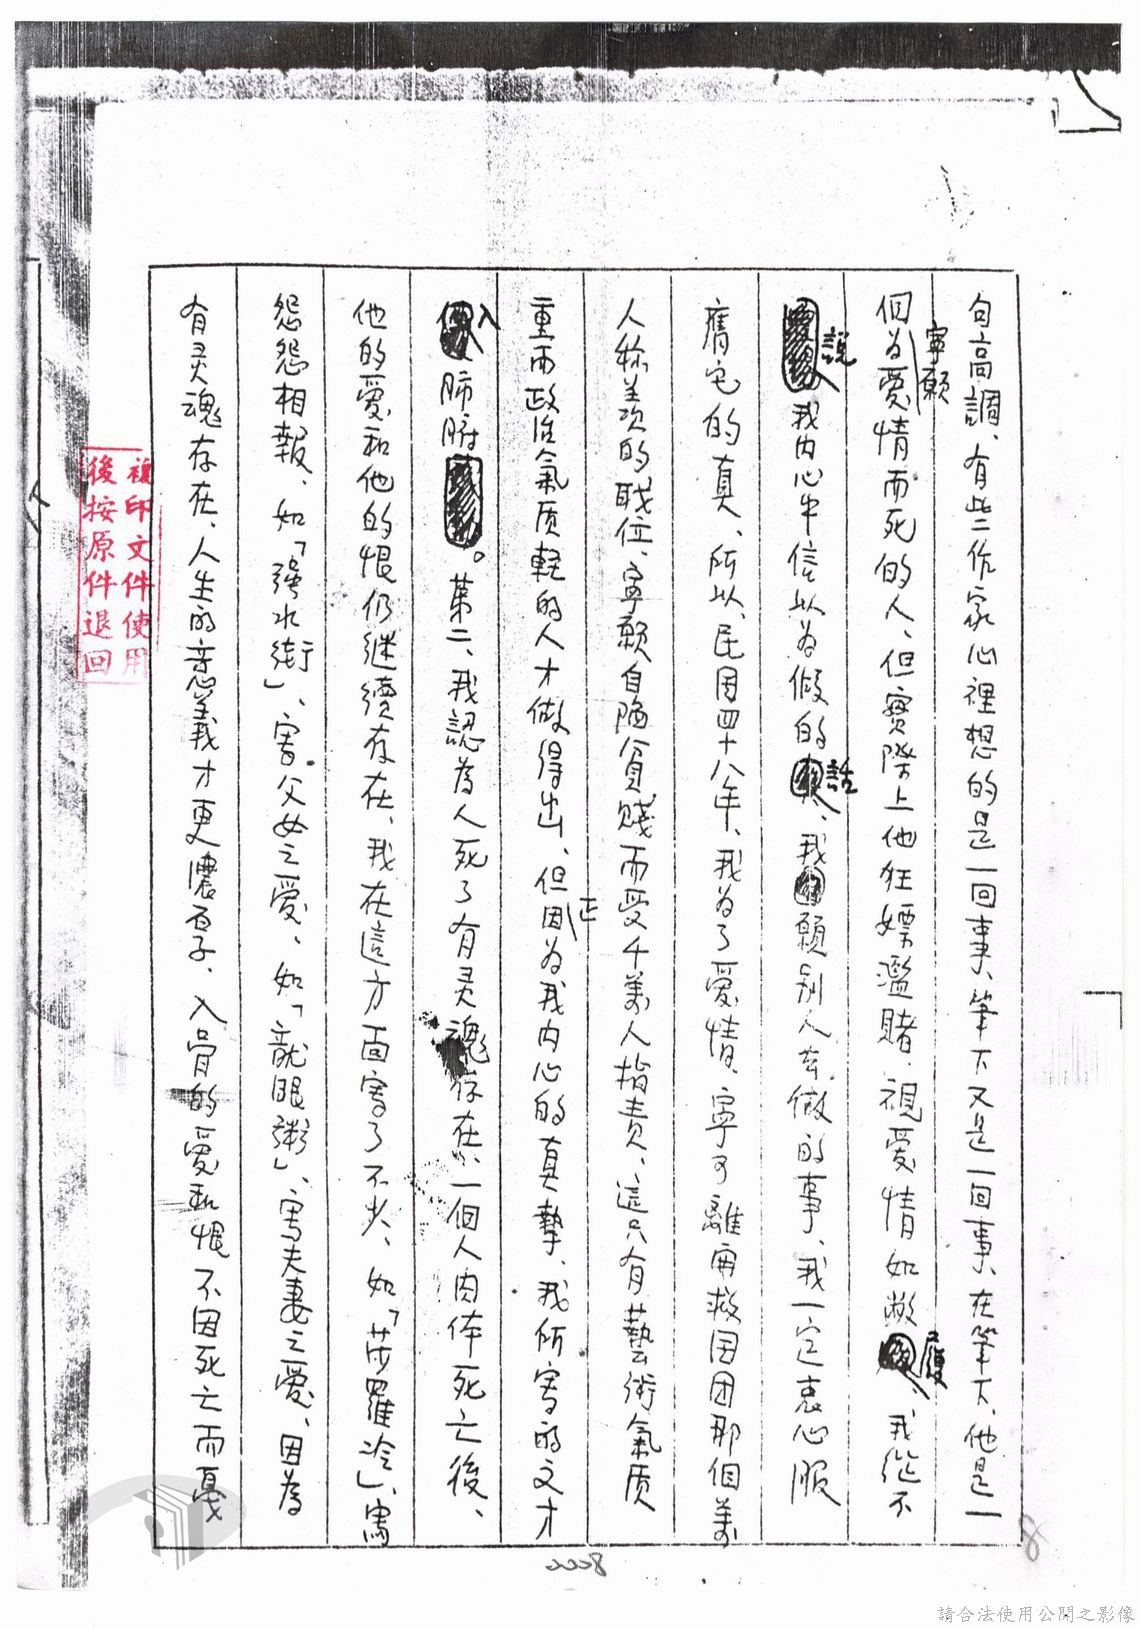 句高調、有些作家心裡想的是一回事、筆下又是一回事、在筆下、他是一
個寧願為愛情而死的人、但實際上他狂嫖濫賭、視愛情如敝屣、我從不
說我內心中信以為假的話、我願別人去做的事、我一定衷心服
膺它的真、所以、民国四十八年、我為了愛情、寧可離開救国团那個萬
人称羨的职位、寧願自陷貧賤而受千萬人指責、這只有藝術氣质
重而政治氣质輕的人才做得出、但正因為我內心的真摯、我所寫的文才
入肺腑。第二、我認為人死了有灵魂存在、一個人肉体死亡後、
他的愛和他的恨仍继續存在、我在這方面寫了不少、如「莎羅冷」、寫
怨怨相報、如「強水街」、寫父女之愛、如「龍眼粥」、寫夫妻之愛、因為
有灵魂存在、人生的意義才更濃厚、入骨的愛和恨不因死亡而戛
複印文件使用
後按原件退回
8
請合法使用公開之影像